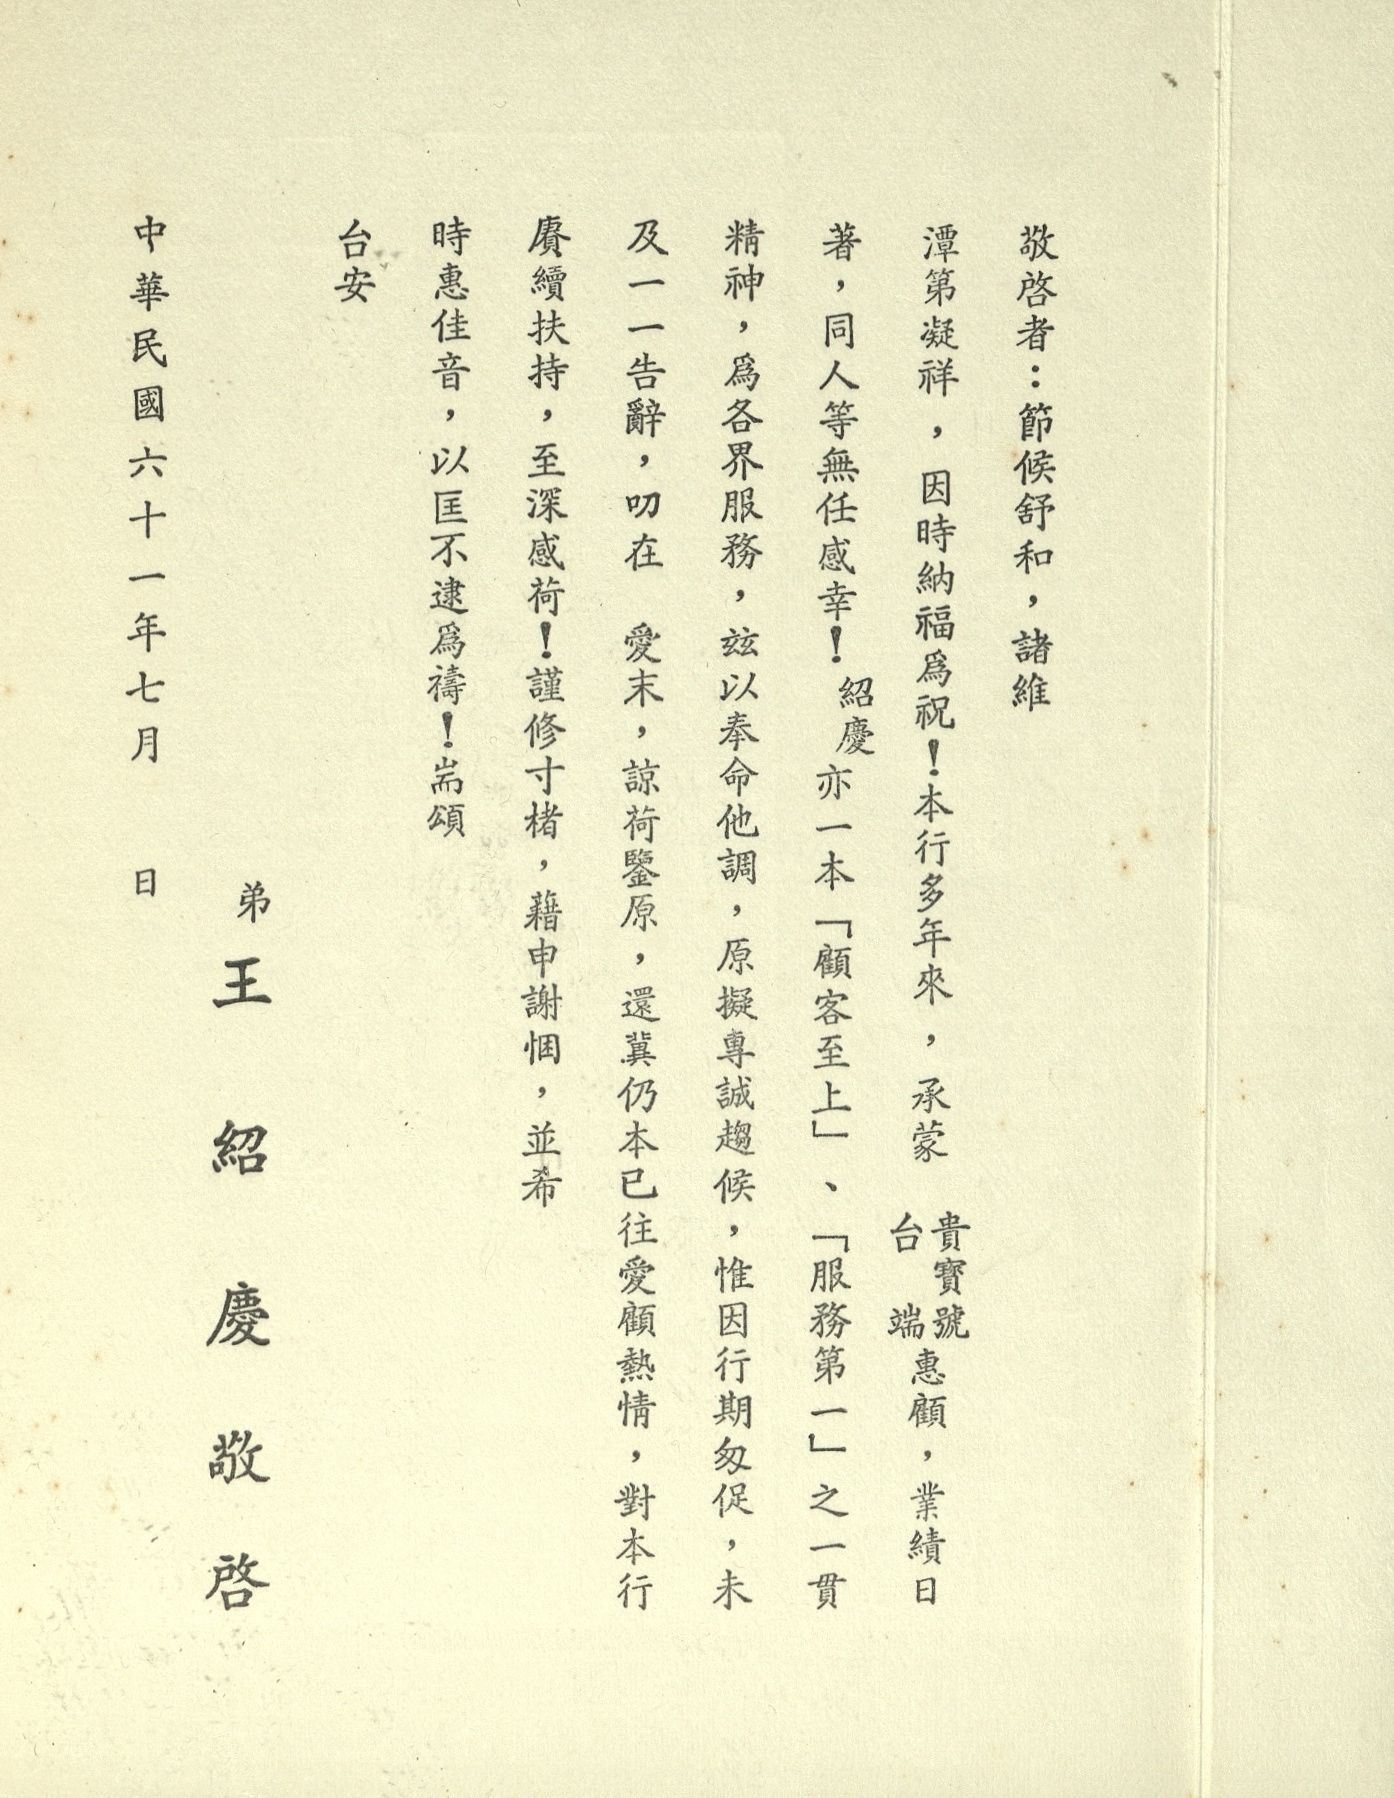 敬啓者：節候舒和，諸維
潭第凝祥，因時納福爲祝！本行多年來，承蒙　貴寶號台端惠顧，業績日
著，同人等無任感幸！紹慶亦一本「顧客至上」、「服務第一」之一貫
精神，爲各界服務，玆以奉命他調，原擬專誠趨候，惟因行期匆促，未
及一一告辭，叨在　愛末，諒荷鑒原，還冀仍本已往愛顧熱情，對本行
賡續扶持，至深感荷！謹修寸楮，藉申謝悃，並希
時惠佳音，以匡不逮爲禱！耑頌
台安
弟王紹慶敬啓
中華民國六十一年七月　日